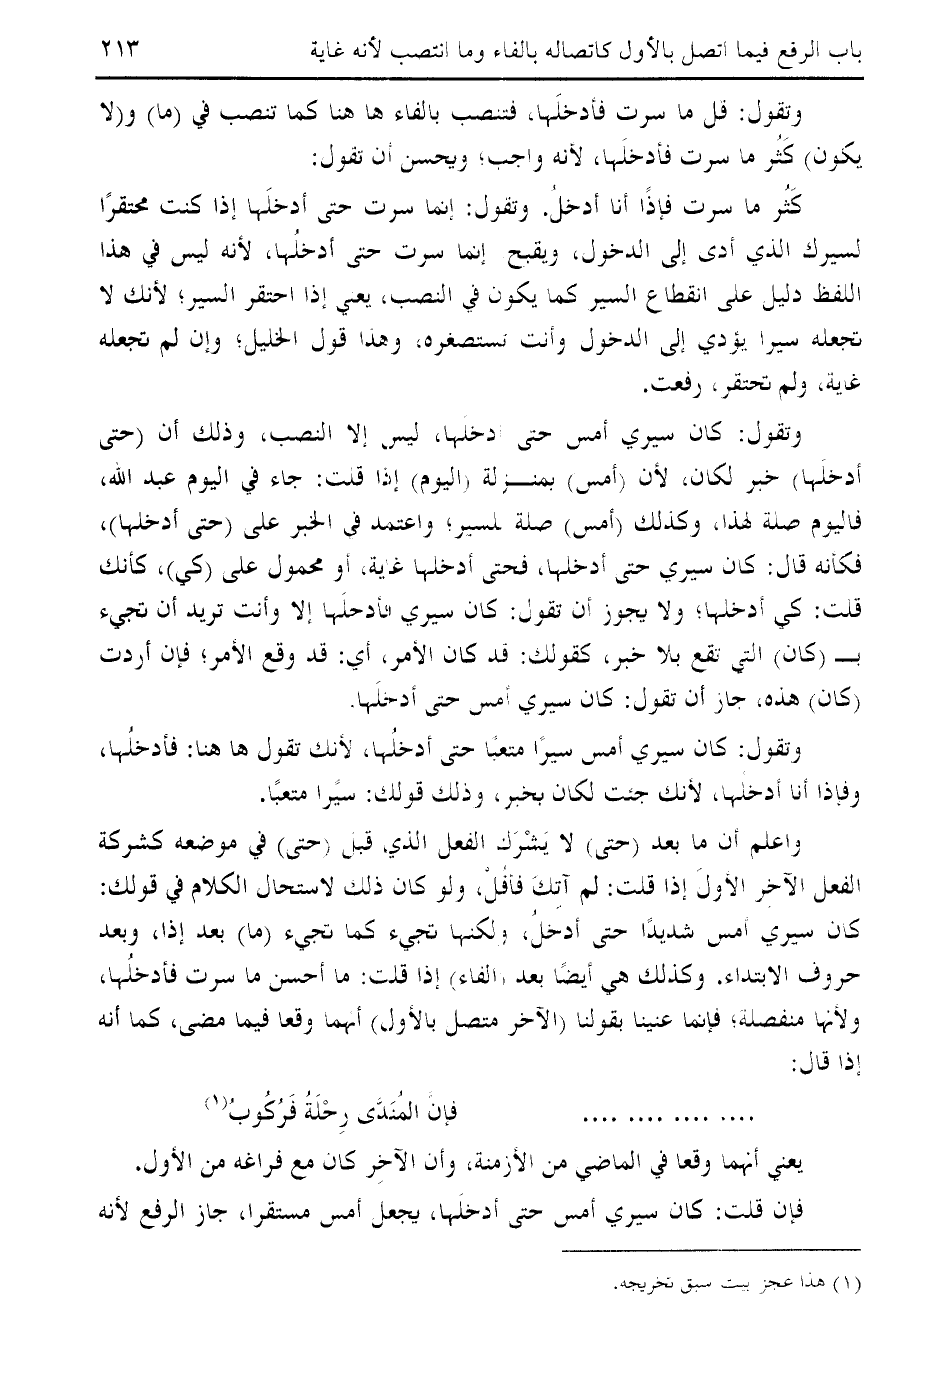 باب الرفع فيما اتصل بالأول كاتصاله بالفاء وما انتصب لأنه غاية ٢١٣
وتقول: قل ما سرت فأدخلَها، فتنصب بالفاء ها هنا كما تنصب في (ما) و(لا
يكون) كَثُر ما سرت فأدخلَها، لأنه واجب؛ ويحسن أن تقول:
كَثُر ما سرت فإذًا أنا أدخلُ. وتقول: إنما سرت حتى أدخلَها إذا كنت محتقرًا
لسيرك الذي أدى إلى الدخول، ويقبح إنما سرت حتى أدخلُها، لأنه ليس في هذا
اللفظ دليل على انقطاع السير كما يكون في النصب، يعني إذا احتقر السير؛ لأنك لا
تجعله سيرا يؤدي إلى الدخول وأنت تستصغره، وهذا قول الخليل؛ وإن لم تجعله
غاية، ولم تحتقر، رفعت.
وتقول: كان سيري أمس حتى أدخلَها، ليس إلا النصب، وذلك أن (حتى
أدخلَها) خبر لكان، لأن (أمس) بمنـزلة (اليوم) إذا قلت: جاء في اليوم عبد الله،
فاليوم صلة لهذا، وكذلك (أمس) صلة للسير؛ واعتمد في الخبر على (حتى أدخلها)،
فكأنه قال: كان سيري حتى أدخلها، فحتى أدخلها غاية، أو محمول على (كي)، كأنك
قلت: كي أدخلها؛ ولا يجوز أن تقول: كان سيري فأدخلَها إلا وأنت تريد أن تجيء
بـ (كان) التي تقع بلا خبر، كقولك: قد كان الأمر، أي: قد وقع الأمر؛ فإن أردت
(كان) هذه، جاز أن تقول: كان سيري أمس حتى أدخلَها.
وتقول: كان سيري أمس سيرًا متعبًا حتى أدخلُها، لأنك تقول ها هنا: فأدخلُها،
وفإذا أنا أدخلُها، لأنك جئت لكان بخبر، وذلك قولك: سيًرا متعبًا.
واعلم أن ما بعد (حتى) لا يَشْرَك الفعل الذي قبل (حتى) في موضعه كشركة
الفعل الآخر الأولَ إذا قلت: لم آتكَ فأقُلْ، ولو كان ذلك لاستحال الكلام في قولك:
كان سيري أمس شديدًا حتى أدخلُ، ولكنها تجيء كما تجيء (ما) بعد إذا، وبعد
حروف الابتداء. وكذلك هي أيضًا بعد (الفاء) إذا قلت: ما أحسن ما سرت فأدخلُها،
ولأنها منفصلة؛ فإنما عنينا بقولنا (الآخر متصل بالأول) أنهما وقعا فيما مضى، كما أنه
إذا قال:
.... .... .... .... فإن المُنَدَّى رِحْلَةُ فَرُكُوبُ(١)
يعني أنهما وقعا في الماضي من الأزمنة، وأن الآخِر كان مع فراغه من الأول.
فإن قلت: كان سيري أمس حتى أدخلَها، يجعل أمس مستقرا، جاز الرفع لأنه
(١) هذا عجز بيت سبق تخريجه.